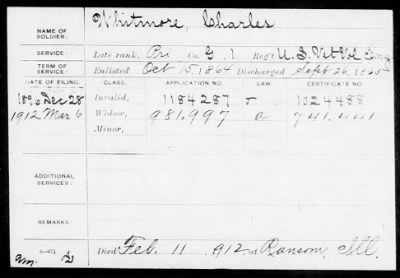 NAME OF SOLDIER: Whitmore, Charles
SERVICE: Late rank, Pri Co. G. 1 Reg't U. S. Vet Vol Eng
TERM OF SERVICE: Enlisted Oct 5, 1864 Discharged Sept 26, 1865
DATE OF FILING. CLASS. APPLICATION NO. LAW. CERTIFICATE NO.
1896 Dec 28 Invalid, 1184287 1024488
1912 Mar 6 Widow, 981,997 a 741,441
Minor,
ADDITIONAL SERVICES:
REMARKS:
Died Feb. 11 1912, at Ransom, Ill.